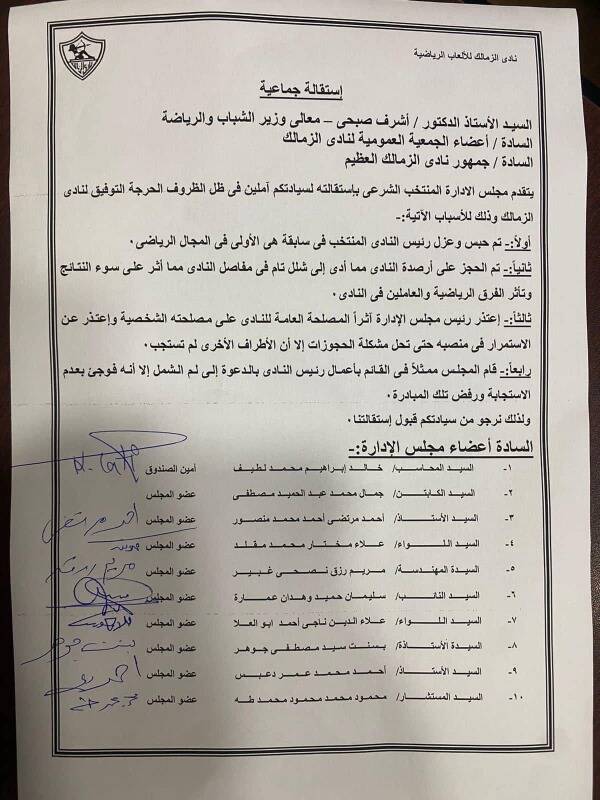 نادى الزمالك للألعاب الرياضية
إستقالة جماعية
السيد الأستاذ الدكتور / أشرف صبحى – معالى وزير الشباب والرياضة
السادة / أعضاء الجمعية العمومية لنادى الزمالك
السادة / جمهور نادى الزمالك العظيم
يتقدم مجلس الادارة المنتخب الشرعى بإستقالته لسيادتكم آملين فى ظل الظروف الحرجة التوفيق لنادى
الزمالك وذلك للأسباب الآتية:-
أولاً:- تم حبس وعزل رئيس النادى المنتخب فى سابقة هى الأولى فى المجال الرياضى .
ثانياً:- تم الحجز على أرصدة النادى مما أدى إلى شلل تام فى مفاصل النادى مما أثر على سوء النتائج
وتأثر الفرق الرياضية والعاملين فى النادى .
ثالثاً:- إعتذر رئيس مجلس الإدارة آثراً المصلحة العامة للنادى على مصلحته الشخصية وإعتذر عن
الاستمرار فى منصبه حتى تحل مشكلة الحجوزات إلا أن الأطراف الأخرى لم تستجب .
رابعاً:- قام المجلس ممثلاً فى القائم بأعمال رئيس النادى بالدعوة إلى لم الشمل إلا أنه فوجئ بعدم
الاستجابة ورفض تلك المبادرة .
ولذلك نرجو من سيادتكم قبول إستقالتنا .
السادة أعضاء مجلس الإدارة:-
١- السيد المحاسب/ خالد إبراهيم محمد لطيف أمين الصندوق
٢- السيد الكابتن/ جمال محمد عبد الحميد مصطفى عضو المجلس
٣- السيد الأستاذ/ أحمد مرتضى أحمد محمد منصور عضو المجلس
٤- السيد اللواء/ علاء مختار محمد مقلد عضو المجلس
٥- السيدة المهندسة/ مريم رزق نصحى غبير عضو المجلس
٦- السيد النائب/ سليمان حميد وهدان عمارة عضو المجلس
٧- السيد اللواء/ علاء الدين ناجى أحمد ابو العلا عضو المجلس
٨- السيدة الأستاذة/ بسنت سيد مصطفى جوهر عضو المجلس
٩- السيد الأستاذ/ أحمد محمد عمر دعبس عضو المجلس
١٠- السيد المستشار/ محمود محمد محمود محمد طه عضو المجلس